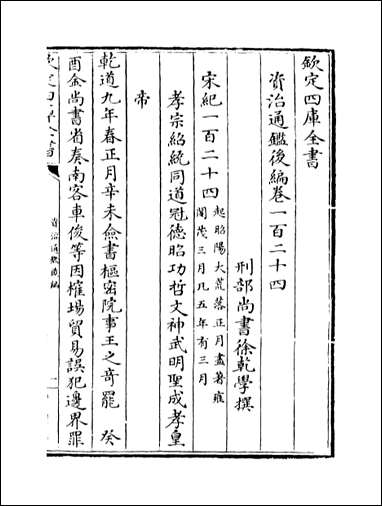 欽定四庫全書
資治通鑑後編卷一百二十四
刑部尚書徐乾學撰
宋紀一百二十四
起昭陽大荒落正月盡著雍
閹茂三月凡五年有三月
孝宗紹統同道冠德昭功哲文神武明聖成孝皇
帝
乾道九年春正月辛未僉書樞密院事王之奇罷 癸
酉金尚書省奏南客車俊等因榷場貿易誤犯邊界罪
資治通鑑後編